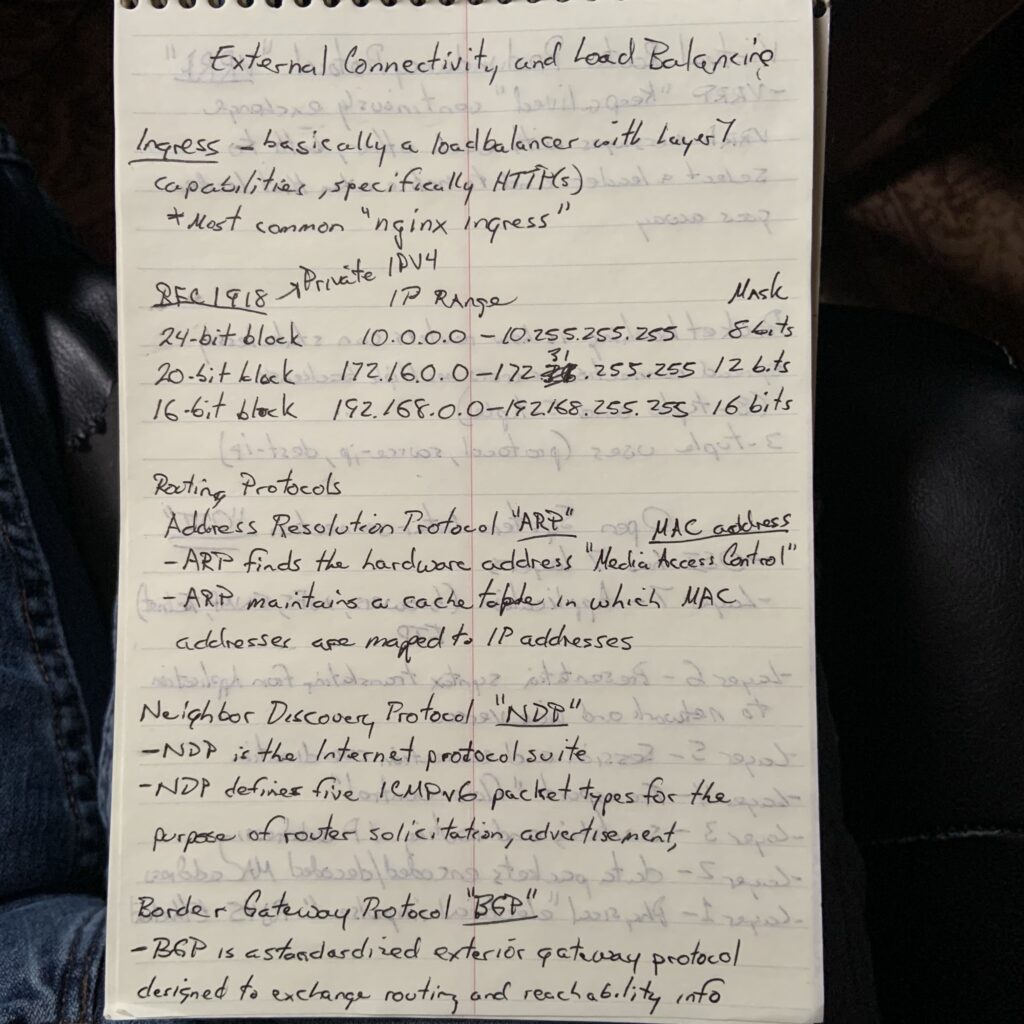 External Connectivity and Load Balancing
Ingress - basically a loadbalancer with Layer 7
capabilities, specifically HTTP(s)
*Most common "nginx ingress"
RFC 1918 → Private IPV4
IP Range Mask
24-bit block 10.0.0.0 - 10.255.255.255 8 bits
20-bit block 172.16.0.0 - 172.31.255.255 12 bits
16-bit block 192.168.0.0 - 192.168.255.255 16 bits
Routing Protocols
Address Resolution Protocol "ARP" MAC address
- ARP finds the hardware address "Media Access Control"
- ARP maintains a cache table in which MAC
addresses are mapped to IP addresses
Neighbor Discovery Protocol "NDP"
- NDP is the Internet protocol suite
- NDP defines five ICMPv6 packet types for the
purpose of router solicitation, advertisement,
Border Gateway Protocol "BGP"
- BGP is a standardized exterior gateway protocol
designed to exchange routing and reachability info